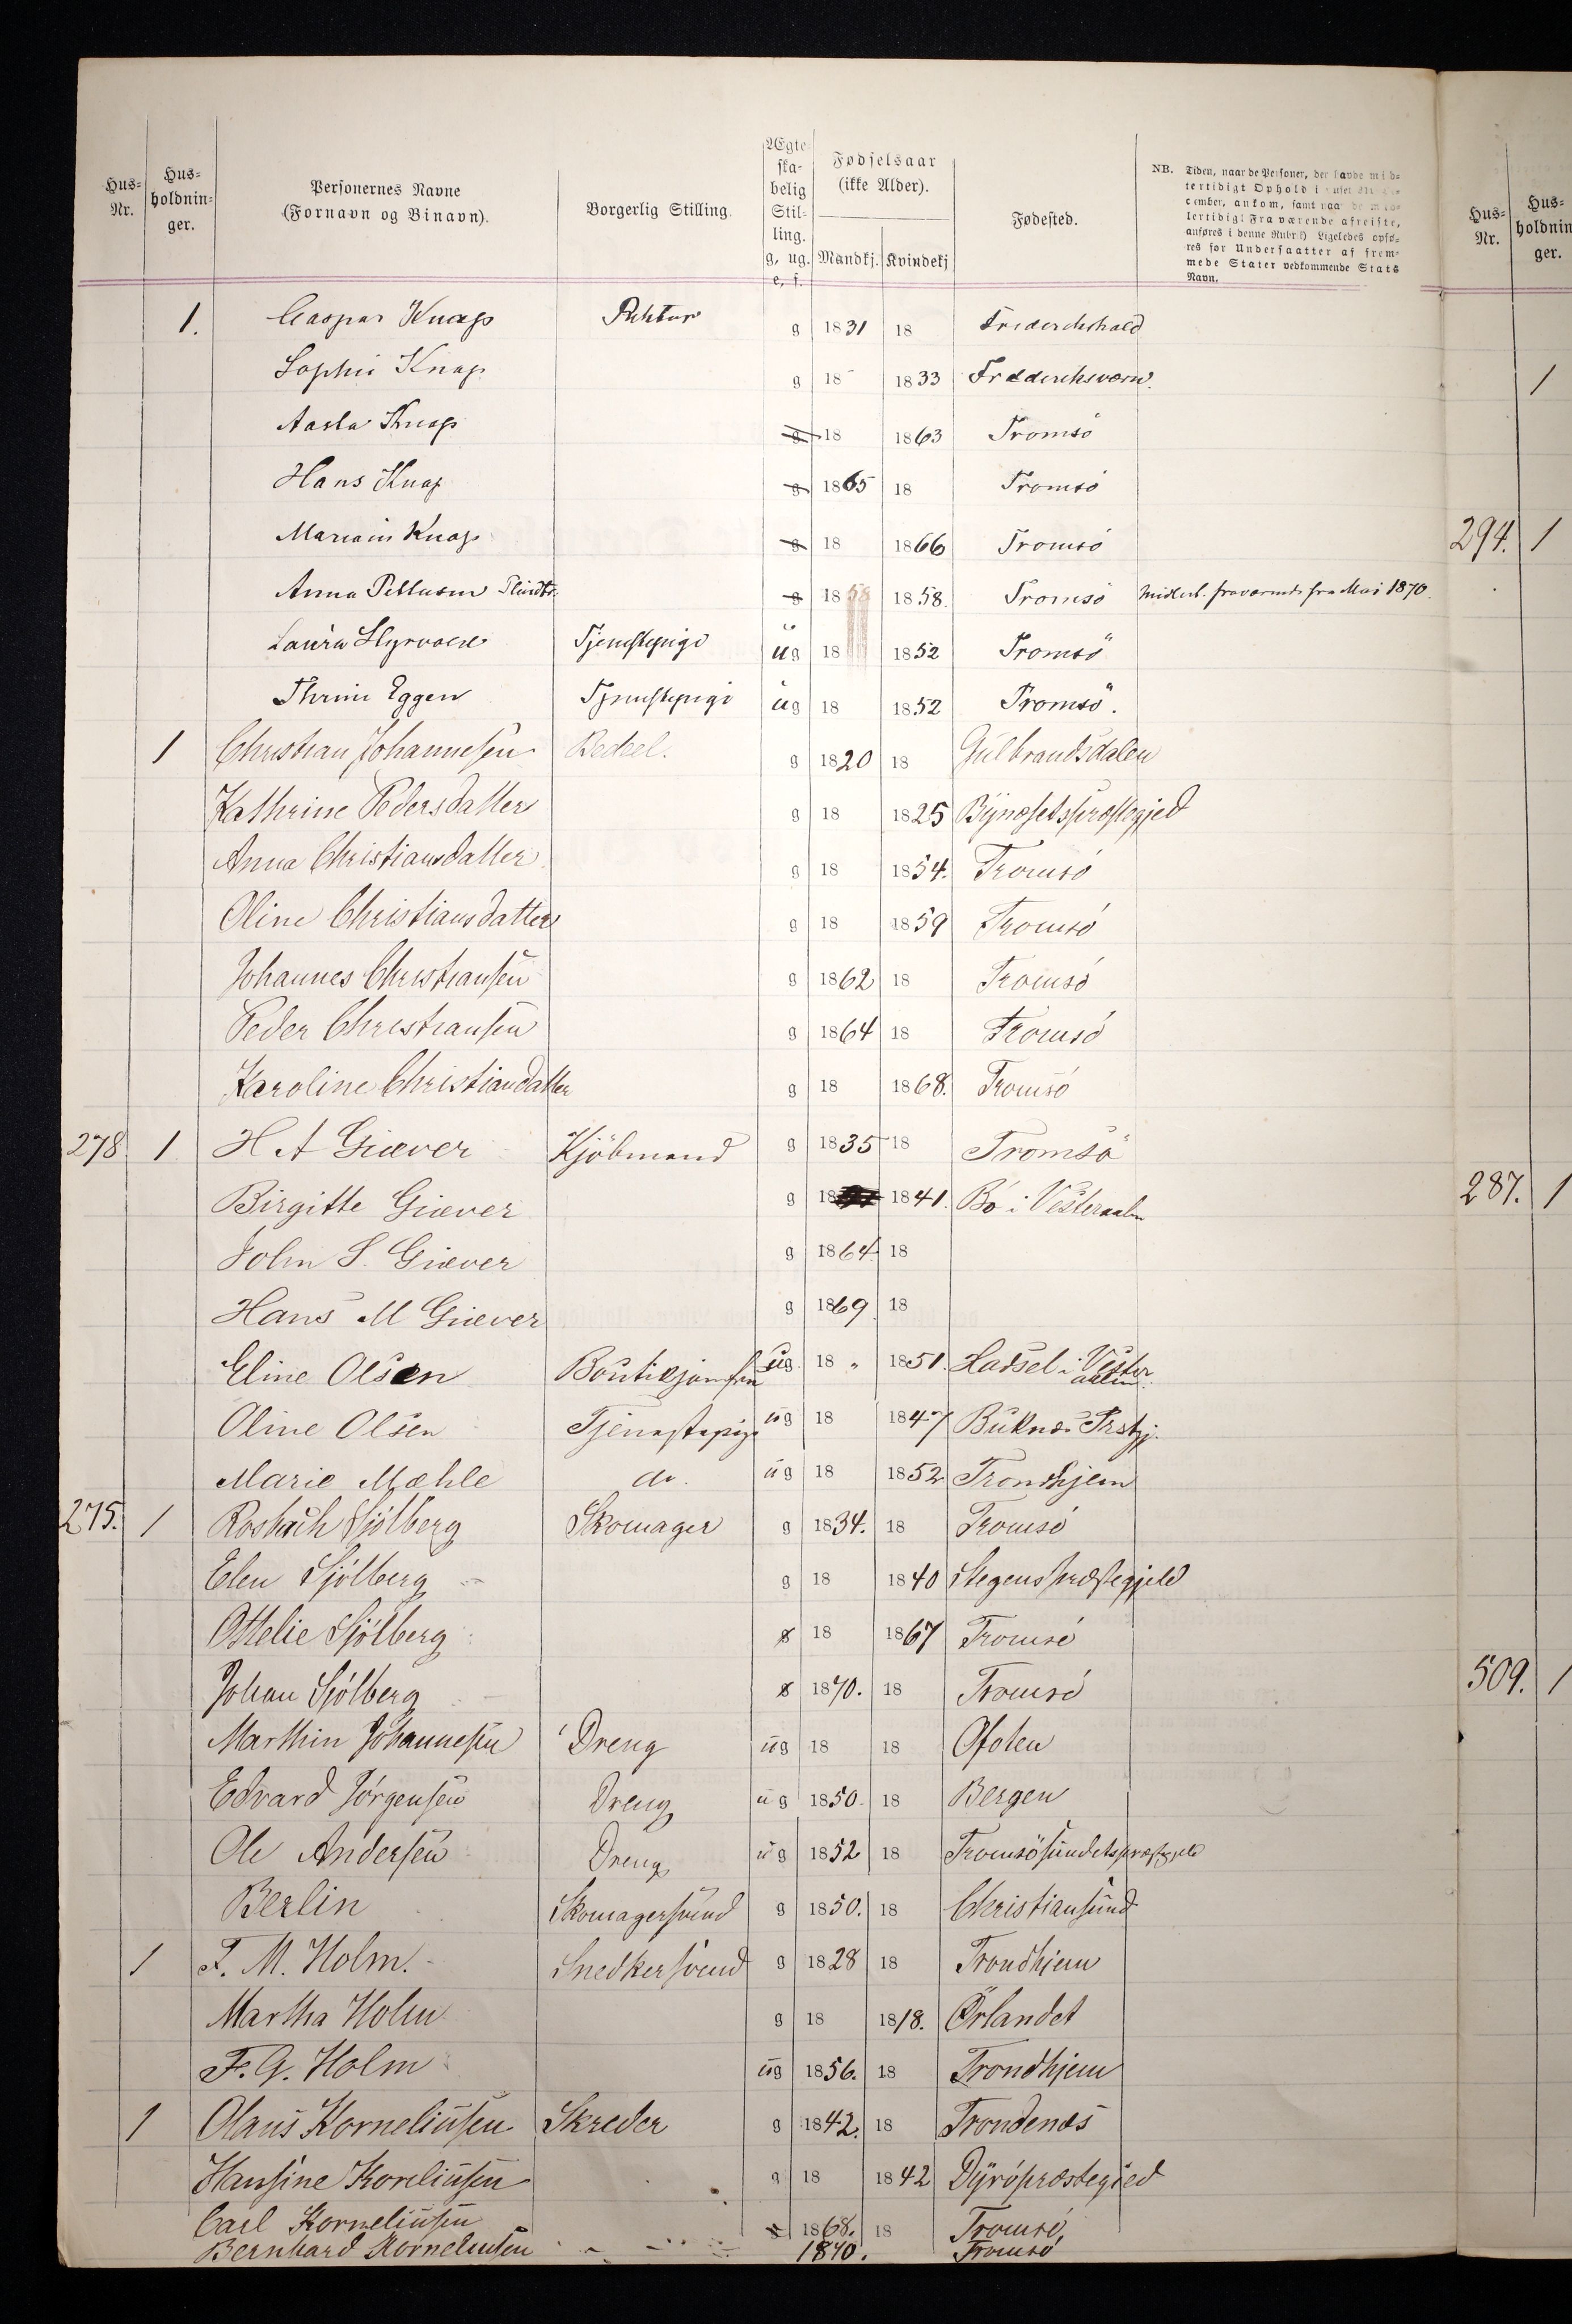 Hus-Nr. Hus-holdnin-ger. Personernes Navne (Fornavn og Binavn). Borgerlig Stilling. Ægte-ska-belig Stil-ling. g, ug, e, f. Fødselsaar (ikke Alder). Mandkj. Kvindekj Fødested. NB. Tiden, naar de Personer, der havde mid-
tertidigt Ophold i
cember, ankom, samt naar
tertidigt Fraværende afreiste,
anføres i denne Rubr.) Ligeledes opfø-
res for Undersaatter af frem-
mede Stater vedkommende Stats
Navn.
Hus-Nr. Hus-holdnin ger.
1. Caspar Knap g 1831 18 Frederikshald
Sophie Knap g 18 1833 Fredderiksværn. 1
Aasta Knap g 18 1863 Tromsö
Hans Knap g 1865 18 Tromsö
Knap g 18 1866 Tromsö 294. 1
Anna g 18 1858. Tromsö fra Mai 1870.
Laura Tjenestepige ug 18 1852 Tromsö
Thrine Eggen Tjenestepige ug 18 1852 Tromsö.
1 Christian Johannesen g 1820 18 Gulbrandsdalen
Kathrine Pedersdatter g 18 1825 Bynæssetspræstegjed
Anna Christiansdatter g 18 1854. Tromsö
Oline Christiansdatter g 18 1859 Tromsö
Johannes Christiansen g 1862 18 Tromsö
Peder Christiansen g 1864 18 Tromsö
Karoline Christiandatter g 18 1868. Tromsö
278 1 H A Giæver Kjöbmand g 1835 18 Tromsö
Birgitte Giæver g 18 1841. Bö i Vesteraalen 287. 1
John S. Giæver g 1864 18
Hans M Giæver g 1869 18
Eline Olsen Boutikjomfru ug 18 „ 1851. Hadsel i Vester
aalen.
Oline Olsen Tjenestepige ug 18 1847 Buknæs Prstgj.
Marie Mæhle do. ug 18 1852 Trondhjem
275. 1 Rosbach Sjölberg Skomager g 1834. 18 Tromsö
Elen Sjölberg g 18 1840 Stegenspræstegjeld
Ottelie Sjölberg g 18 1867 Tromsö
Johan Sjölberg g 1870. 18 Tromsö 509. 1
Marthin Johannesen Dreng ug 18 18 Ofoten
Edvard Jörgensen Dreng ug 1850. 18 Bergen
Ole Andersen Dreng ug 1852 18 Tromsösundetspræstgjeld
Berlin Skomagersvend g 1850. 18 Christiansund
1 F. M. Holm. Snedkersvend g 1828 18 Trondhjem
Martha Holm g 18 1818. Ørlandet
F. G. Holm ug 1856. 18 Trondhjem
1 Olaus Korneliusen Skreder g 1842. 18 Trondenæs
Hansine Koreliusen g 18 1842 Dyröpræstegied
Carl Korneliusen g 1868. 18 Tromsö,
Bernhard Korneliusen 1870. Tromsö